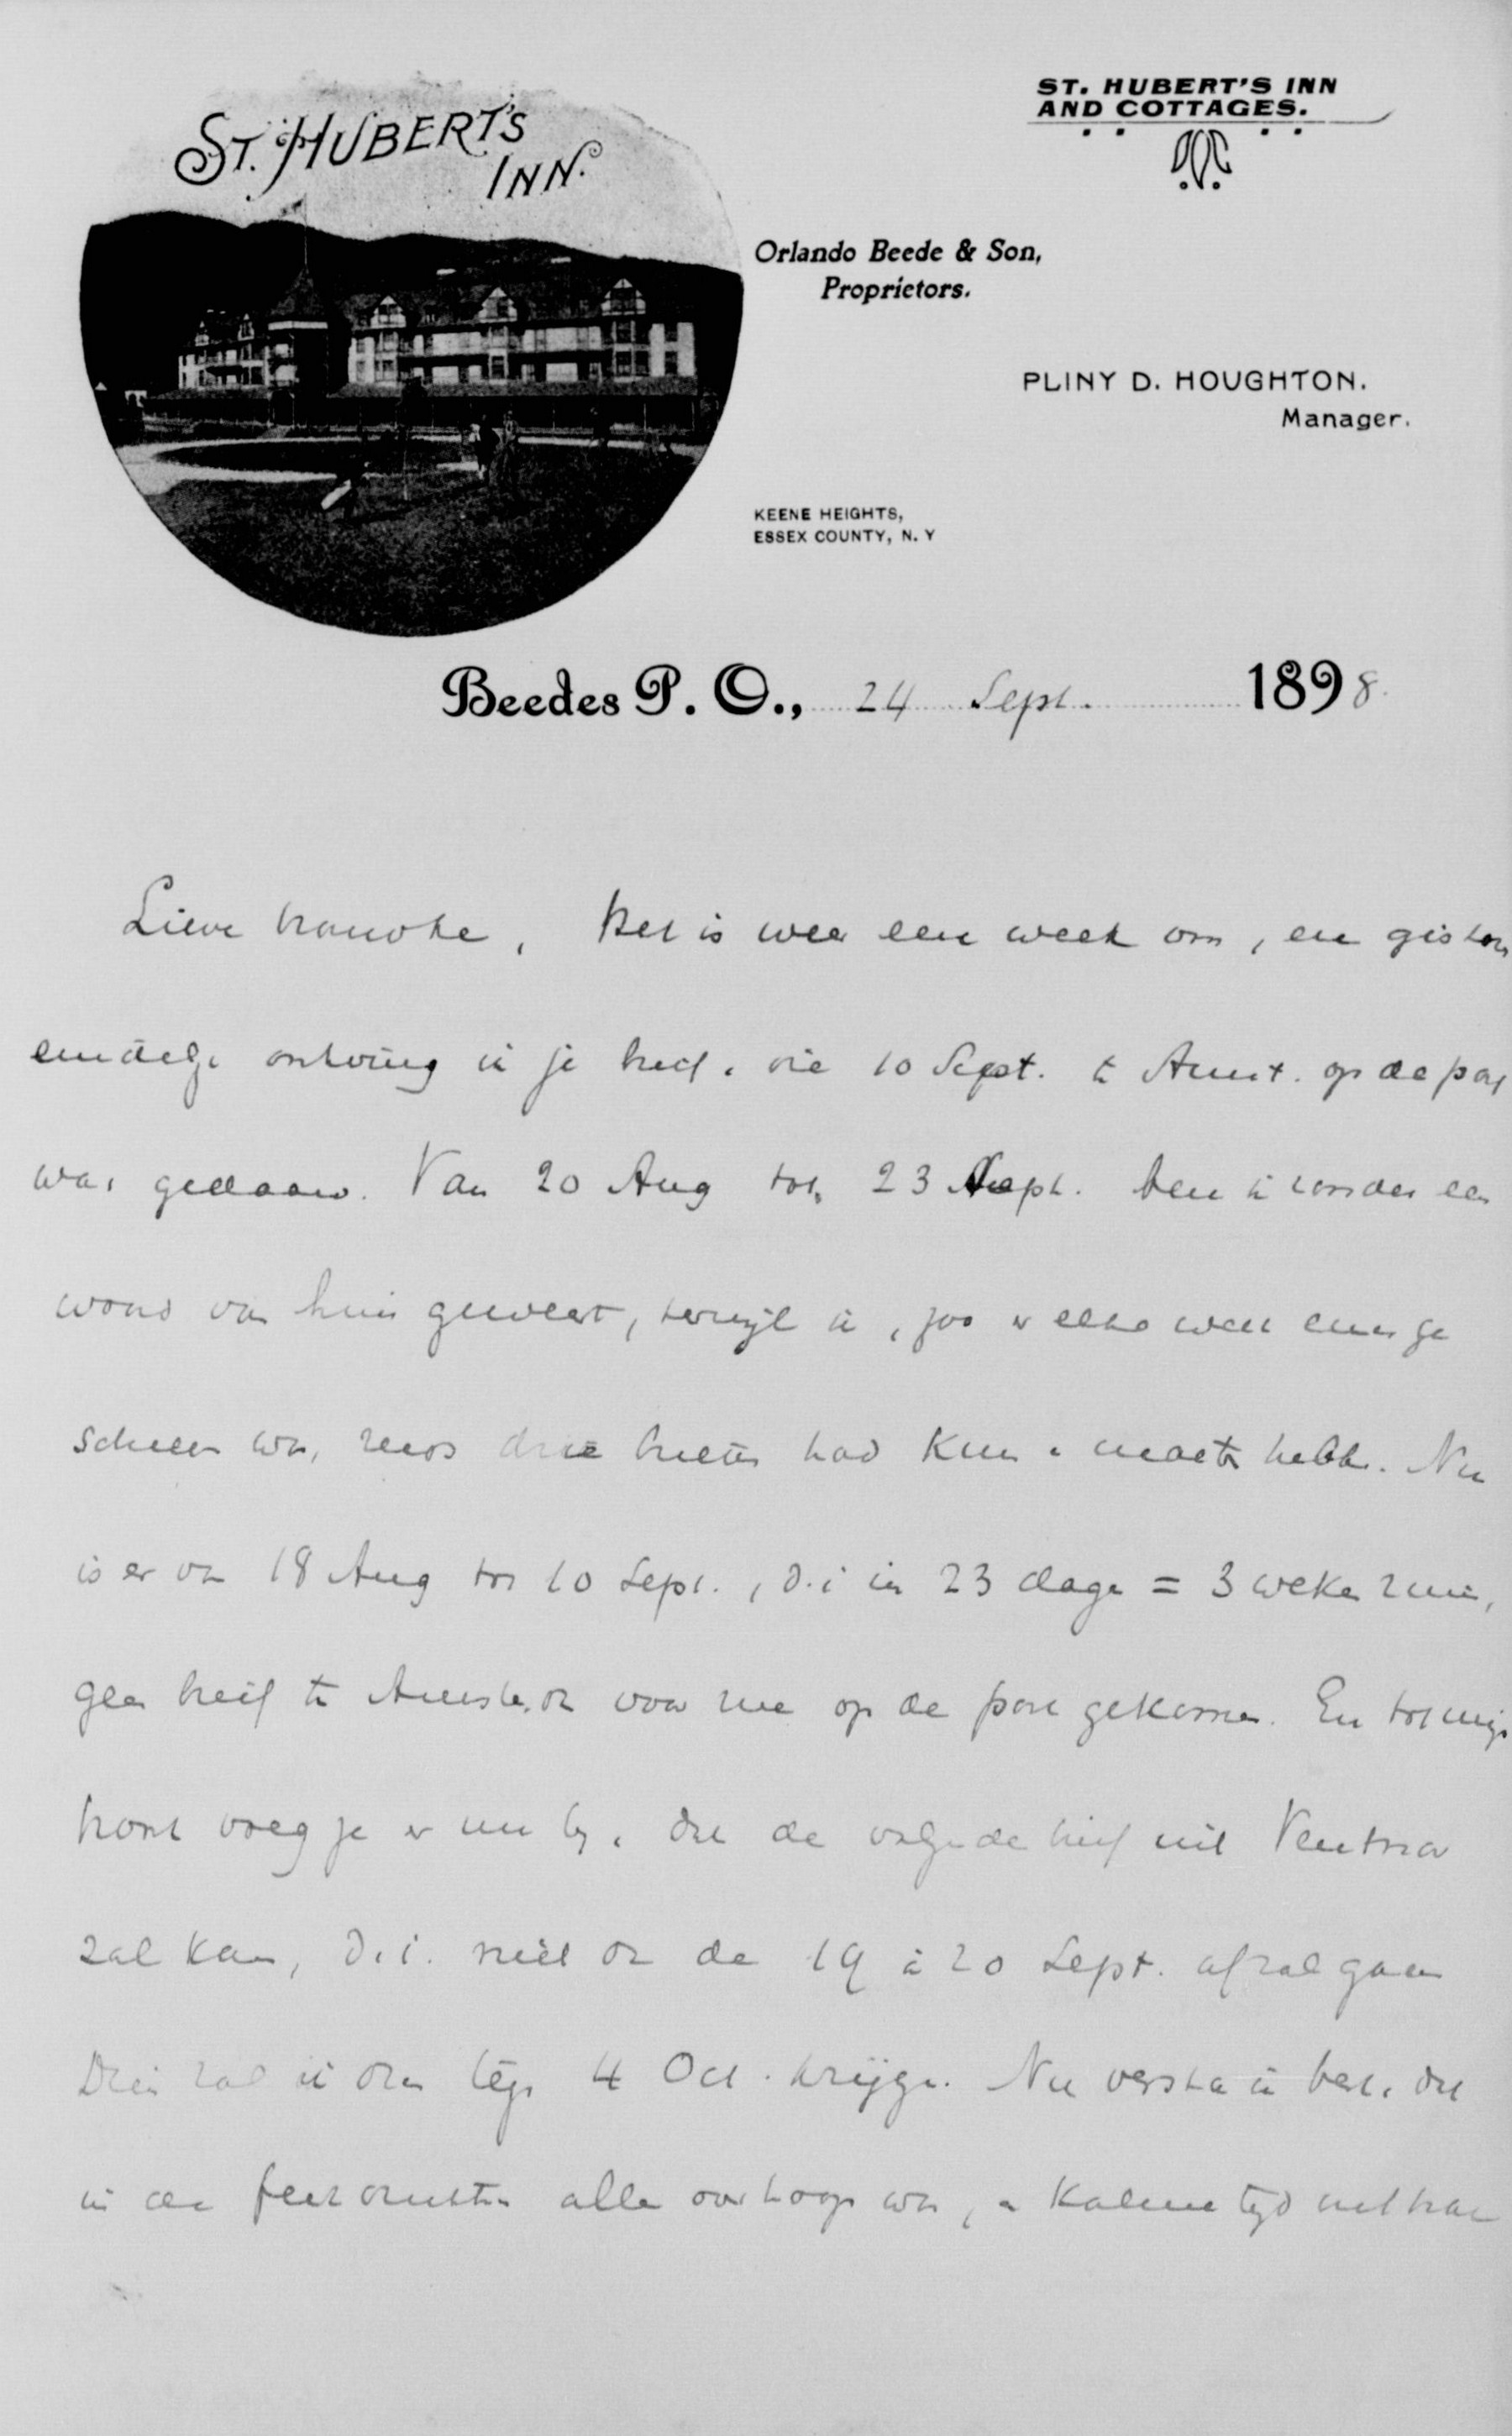 ST. HUBERT'S INN.
ST. HUBERT'S INN
AND COTTAGES.
Orlando Beede & Son,
Proprietors.
PLINY D. HOUGHTON.
Manager.
KEENE HEIGHTS,
ESSEX COUNTY, N. Y
Beedes P. O., 24 Sept. 1898.
Lieve vrouwke, Het is weer een week om, en gister
eindelijk ontving ik je brief, die 10 Sept. te Amst. op de post
was gedaan. Van 20 Aug tot 23 Sept. ben ik zonder een
woord van huis geweest, terwijl ik, zoo er elke week eens ge
schreven was, reeds drie brieven had kunnen moeten hebben. Nu
is er van 18 Aug tot 10 Sept., d.i in 23 dagen = 3 weken ruim,
geen brief te Amsterdam voor me op de post gekomen. En tot mijn
voeg je er nu bij, dat de volgende brief uit Ventnor
zal komen, d.i. niet dan de 19 à 20 Sept. af zal gaan
Dien zal ik dan tegen 4 Oct. krijgen. Nu versta ik best, dat
in de alles overhoop was, en kalme tijd